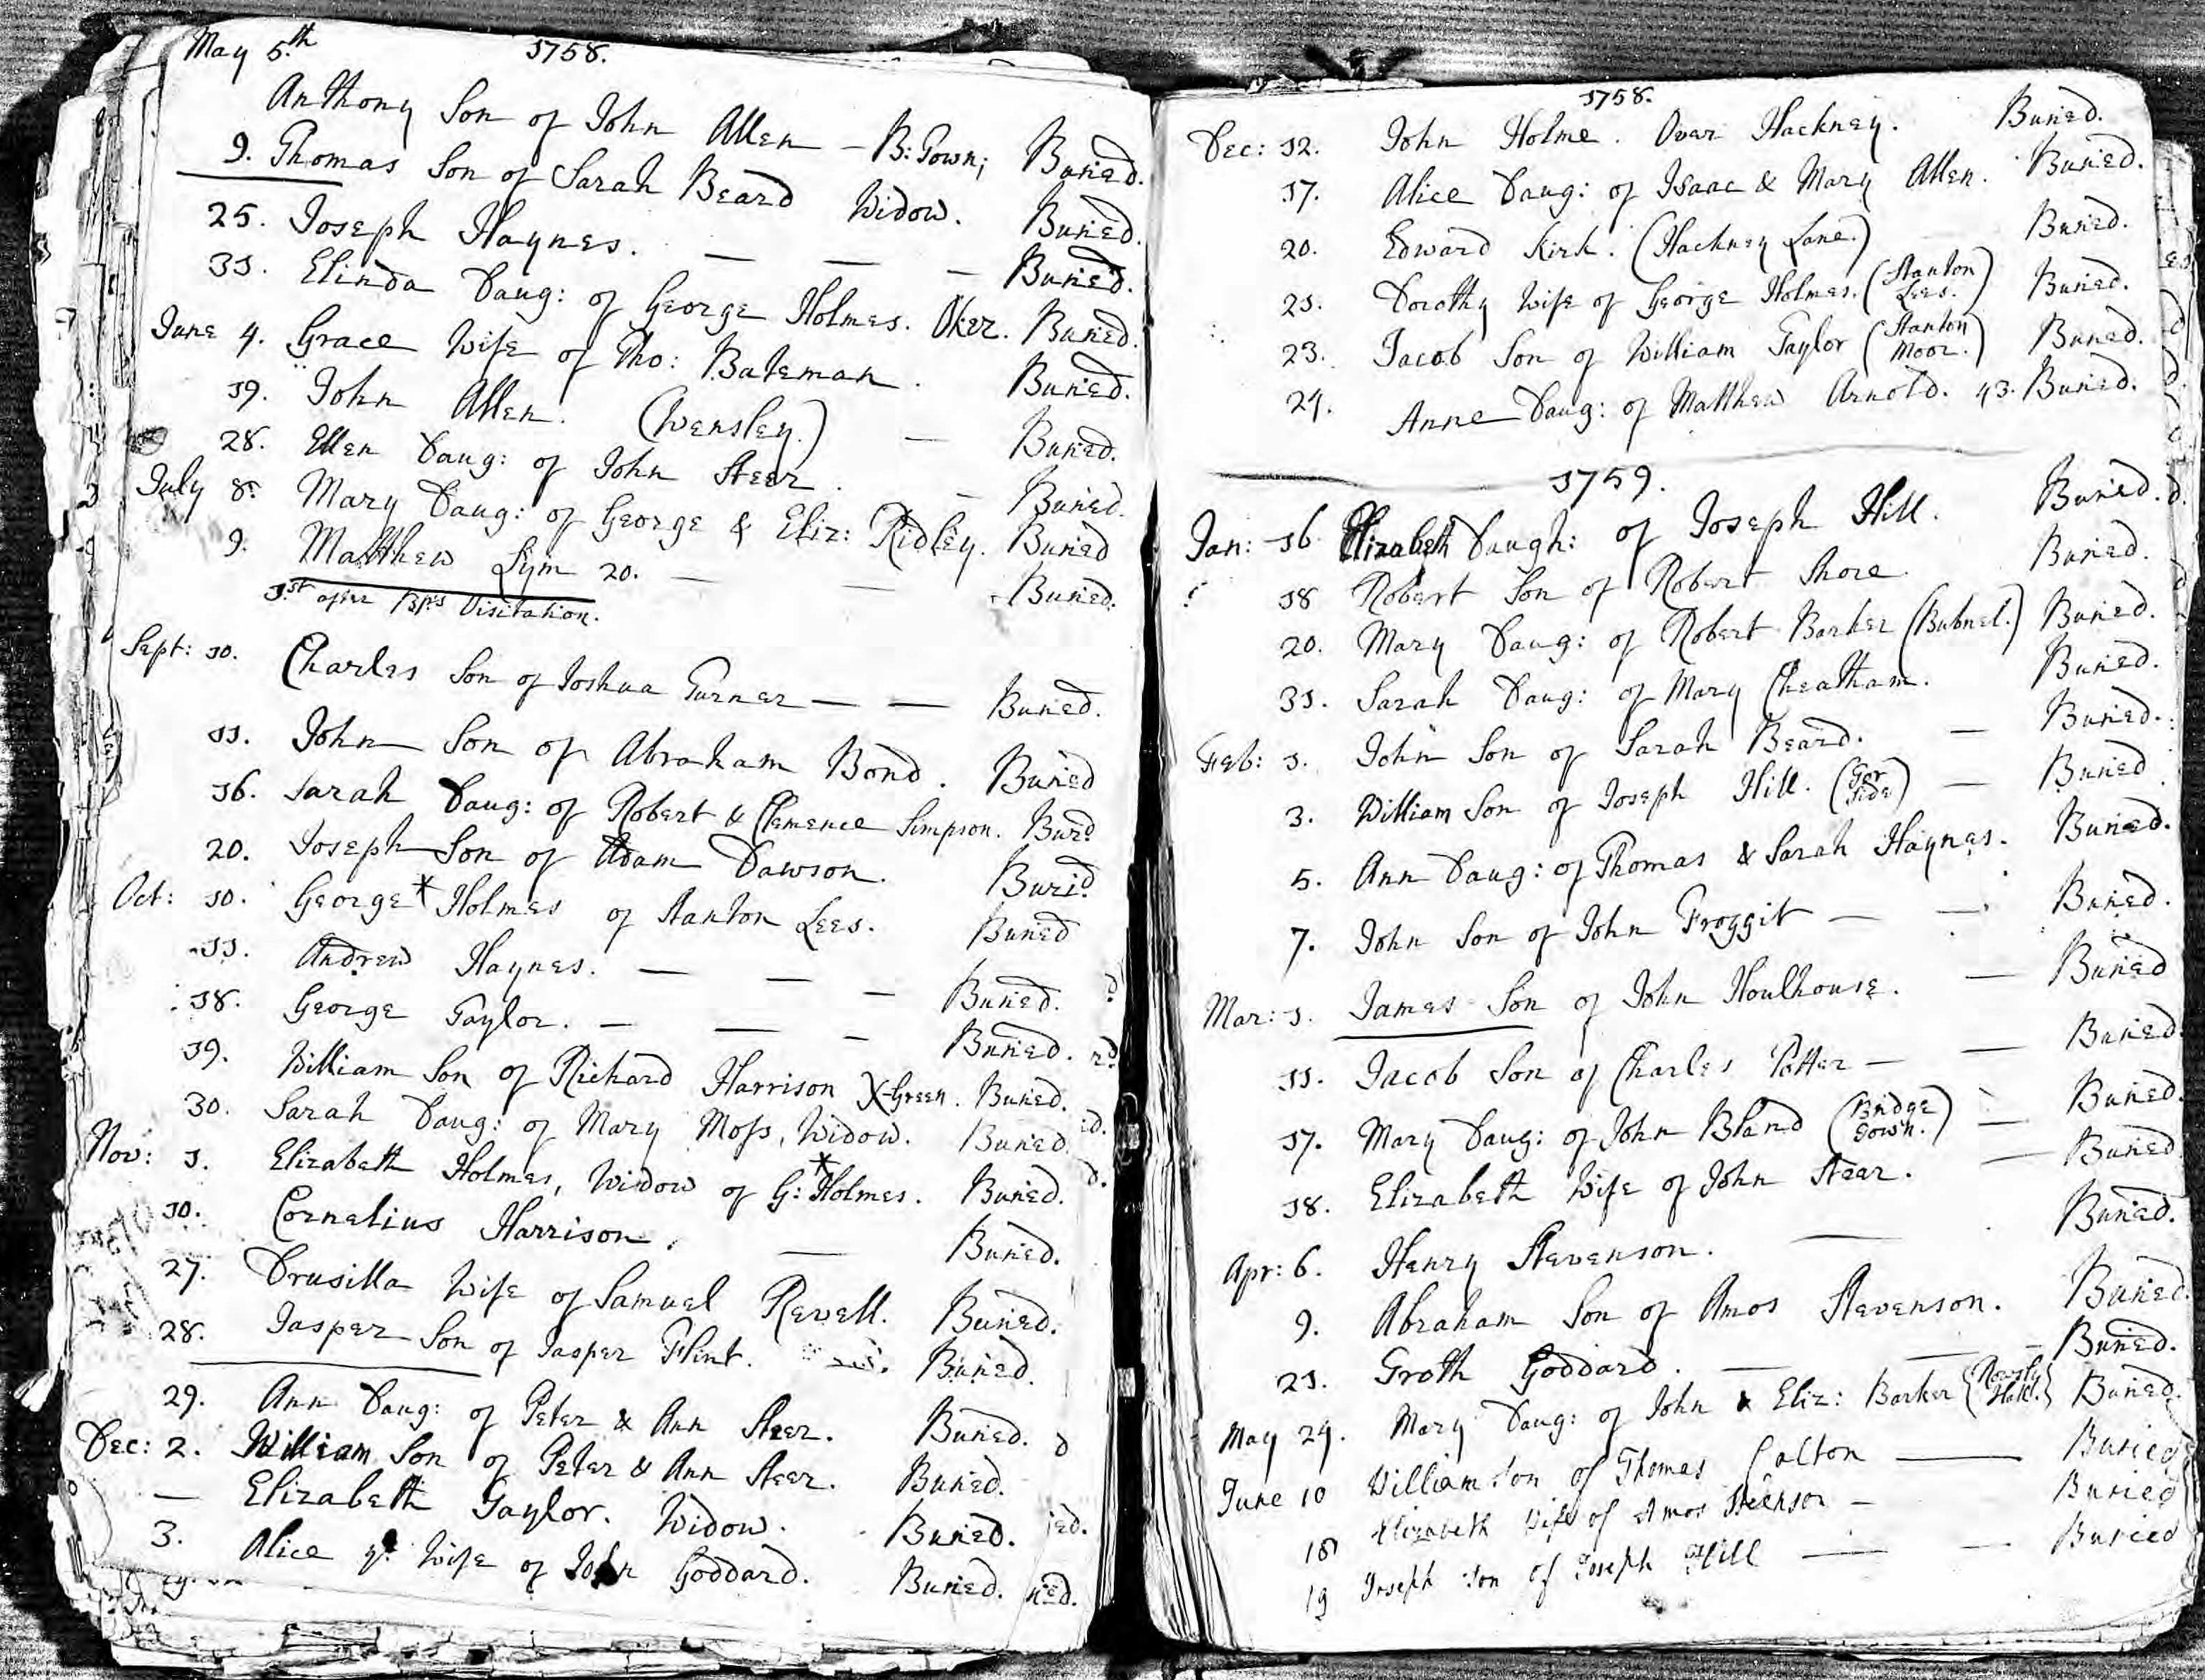 May 5th 1758.
Anthony Son of John Allen - B: Town; Buried.
9. Thomas Son of Sarah Beard Widow. Buried.
25. Joseph Haynes. — — — Buried.
31. Elinda Daug: of George Holmes. Oker. Buried.
June 4. Grace Wife of Tho: Bateman. Buried.
19. John Allen. (Wensley.) — Buried.
28. Ellen Daug: of John Steer. — Buried.
July 8. Mary Daug: of George & Eliz: Ridley. Buried
9. Matthew Lym 20. — — Buried.
1st after Bps Visitation.
Sept: 10. Charles Son of Joshua Turner — — Buried.
11. John Son of Abraham Bond. Buried
16. Sarah Daug: of Robert & Clemence Simpson. Burd
20. Joseph Son of Adam Dawson. Burid
Oct: 10. George * Holmes of Stanton Lees. Buried
11. Andrew Haynes. — — — Buried.
18. George Taylor. — — — Buried.
19. William Son of Richard Harrison X-Green. Buried.
30. Sarah Daug: of Mary Moss, Widow. Buried
Nov: 1. Elizabeth Holmes, Widow of G: * Holmes. Buried.
10. Cornelius Harrison. — Buried.
27. Drusilla Wife of Samuel Revell. Buried.
28. Jasper Son of Jasper Flint. Buried.
29. Ann Daug: of Peter & Ann Steer. Buried.
Dec: 2. William Son of Peter & Ann Steer. Buried.
— Elizabeth Taylor. Widow. Buried.
3. Alice ye Wife of John Goddard. Buried.
1758.
Dec: 12. John Holme. Over Hackney. Buried.
17. Alice Daug: of Isaac & Mary Allen. Buried.
20. Edward Kirk. (Hackney Lane.) Buried.
21. Dorothy Wife of George Holmes. (Stanton Lees.) Buried.
23. Jacob Son of William Taylor (Stanton Moor.) Buried.
24. Anne Daug: of Matthew Arnold. 43. Buried.
1759.
Jan: 16. Elizabeth Daugh: of Joseph Hill. Buried.
18 Robert Son of Robert Shore Buried.
20. Mary Daug: of Robert Barker (Bubnel.) Buried.
31. Sarah Daug: of Mary Cheatham. Buried.
Feb: 1. John Son of Sarah Beard. — Buried.
3. William Son of Joseph Hill. (Tor Side) — Buried
5. Ann Daug: of Thomas & Sarah Haynes. Buried.
7. John Son of John Froggit — — Buried.
Mar: 1. James Son of John Houlhouse. — Buried
11. Jacob Son of Charles Potter — — Buried
17. Mary Daug: of John Bland (Bridge Town.) — Buried.
18. Elizabeth Wife of John Stear. — Buried
Apr: 6. Henry Stevenson. — Buried.
9. Abraham Son of Amos Stevenson. Buried.
21. Groth Goddard. — — Buried.
May 24. Mary Daug: of John & Eliz: Barker Hall. Buried.
June 10 William Son of Thomas Calton — Buried
18 Elizabeth Wife of Amos Steenson — Buried
19 Joseph Son of Joseph Hill — — Buried